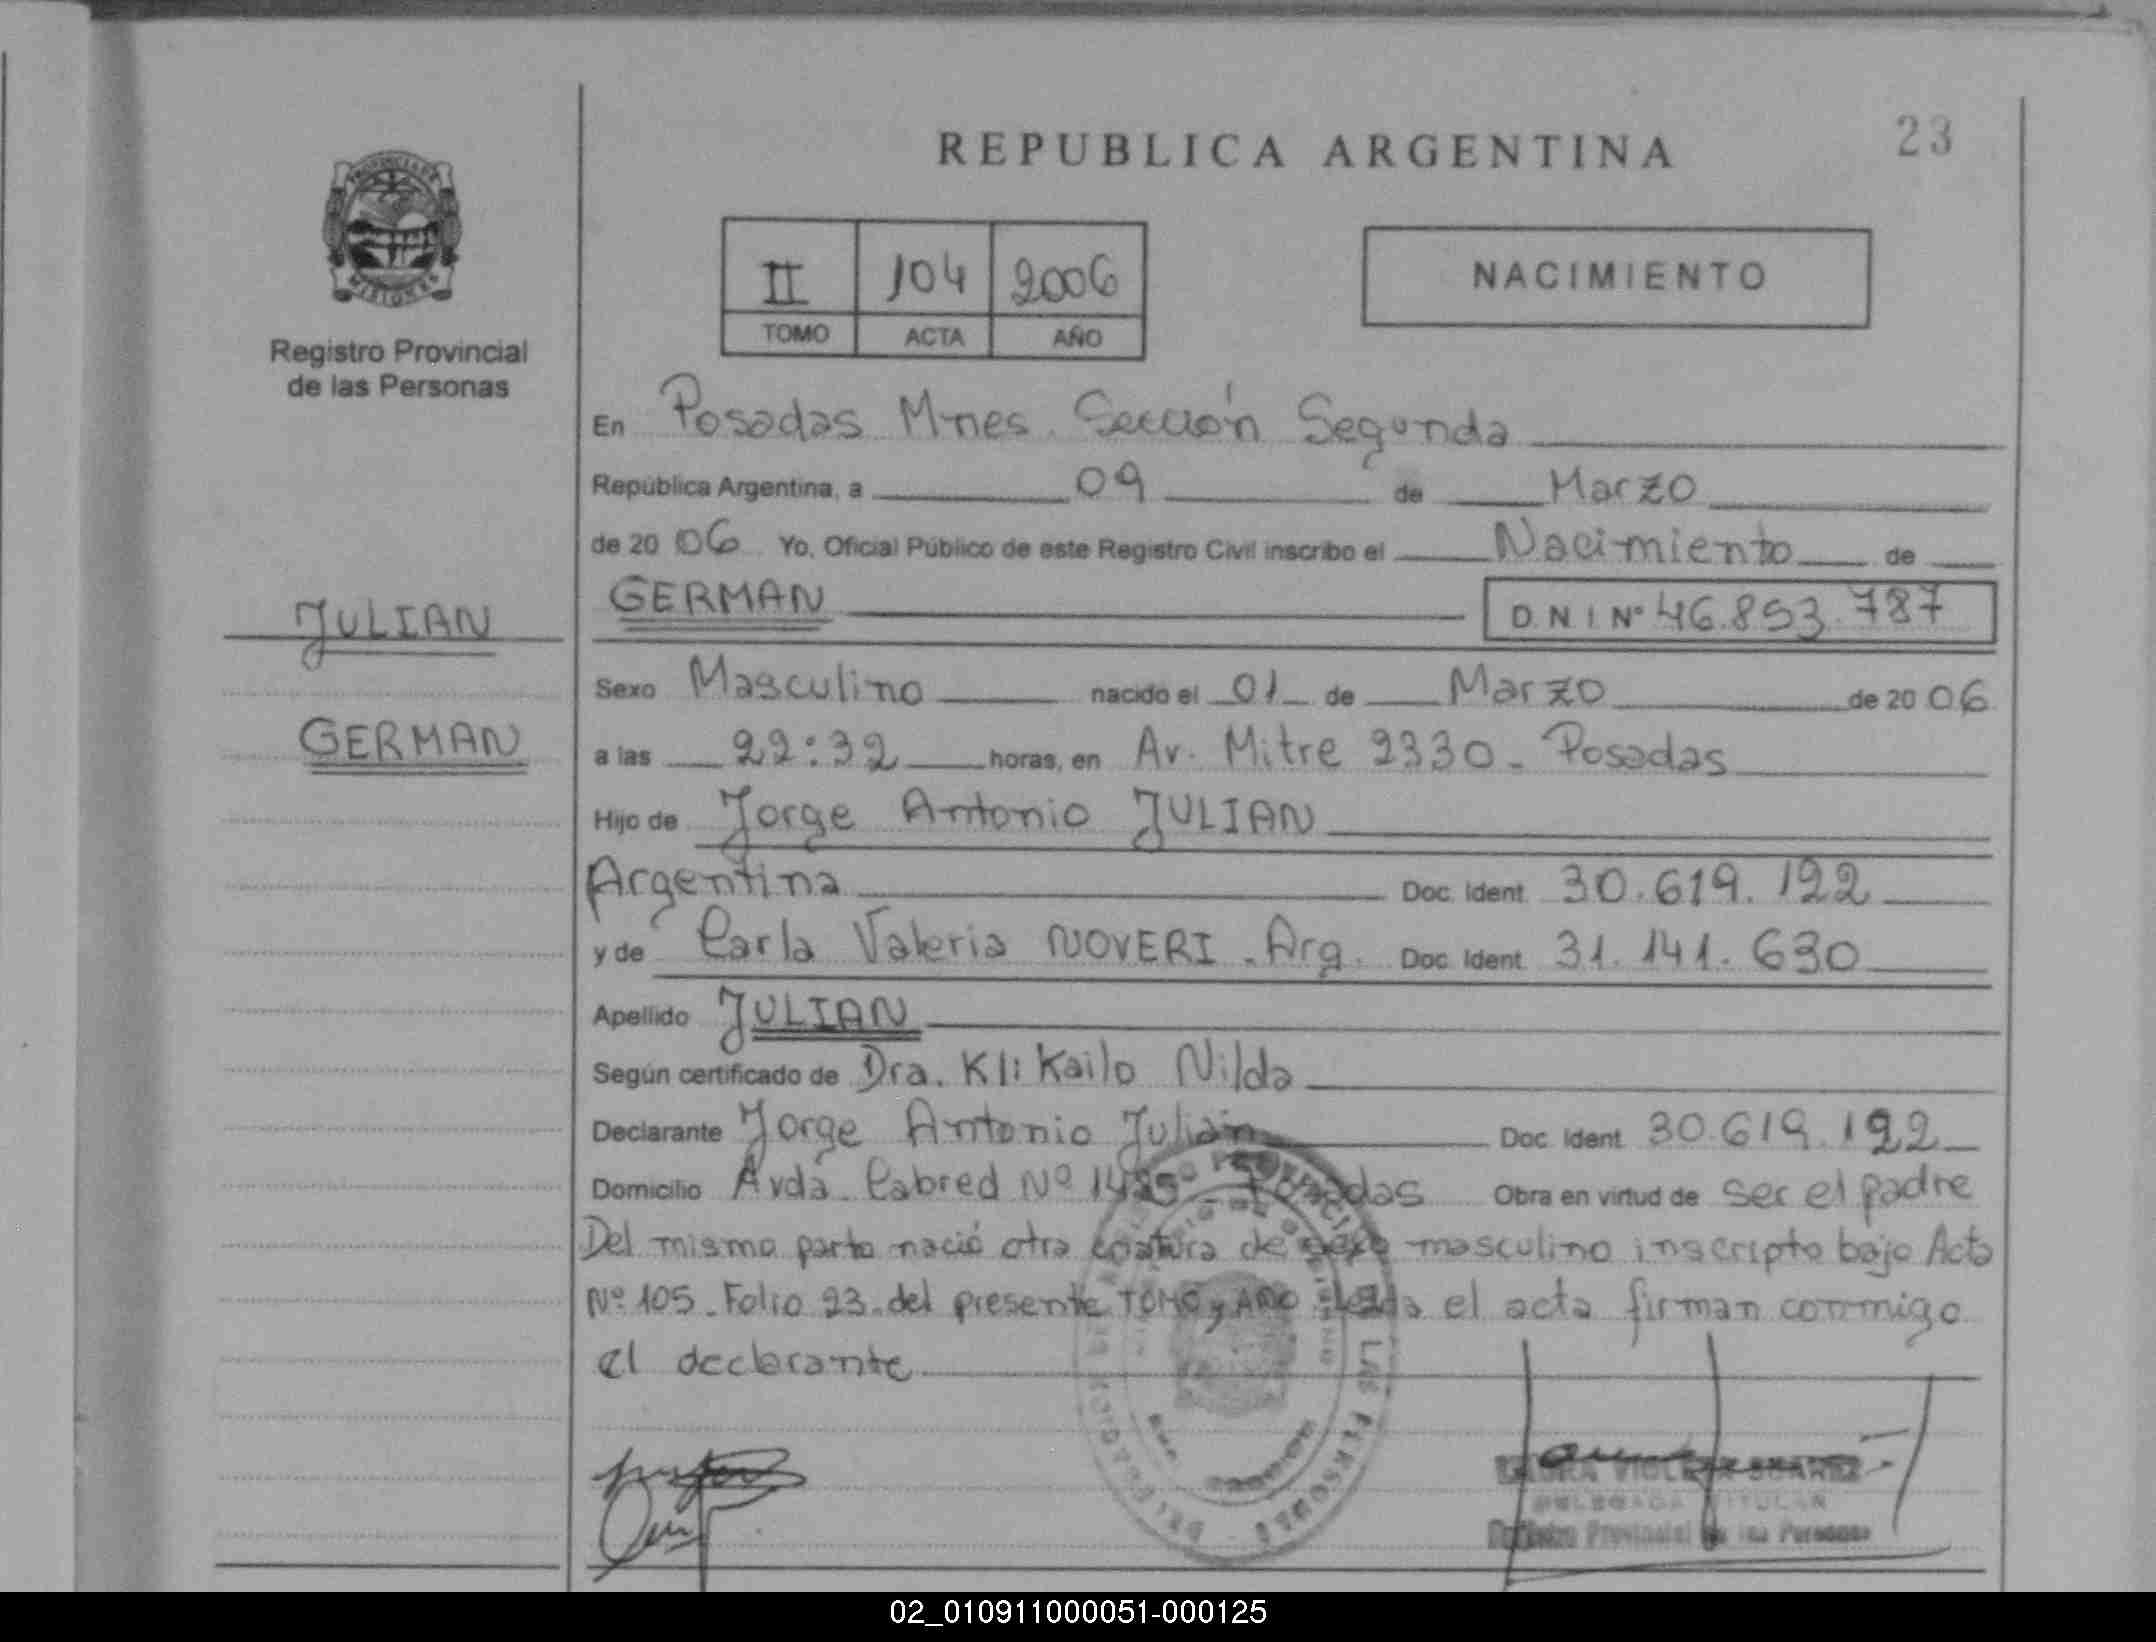 REPUBLICA ARGENTINA
23
PROVINCIA DE
MISIONES
Registro Provincial
de las Personas
II 104 2006
TOMO ACTA AÑO
NACIMIENTO
En Posadas Mnes. Sección Segunda
República Argentina, a 09 de Marzo
de 20 06 Yo, Oficial Público de este Registro Civil inscribo el Nacimiento de
JULIAN
GERMAN D.N.I Nº 46.853.787
Sexo Masculino nacido el 01 de Marzo de 20 06
GERMAN
a las 22:32 horas, en Av. Mitre 2330 - Posadas
Hijo de Jorge Antonio JULIAN
Argentina Doc. Ident. 30.619.122
y de Carla Valeria NOVERI - Arg. Doc. Ident. 31.141.630
Apellido JULIAN
Según certificado de Dra. Klikailo Nilda
Declarante Jorge Antonio Julian Doc. Ident. 30.619.122
Domicilio Avda. Cabred Nº Posadas Obra en virtud de ser el padre
Del mismo parto nació otra criatura de sexo masculino inscripto bajo Acta
Nº 105. Folio 23. del presente TOMO y AÑO leida el acta firman conmigo
el declarante
LAURA VIOLETA SUAREZ
DELEGADA TITULAR
Registro Provincial de las Personas
02_010911000051-000125